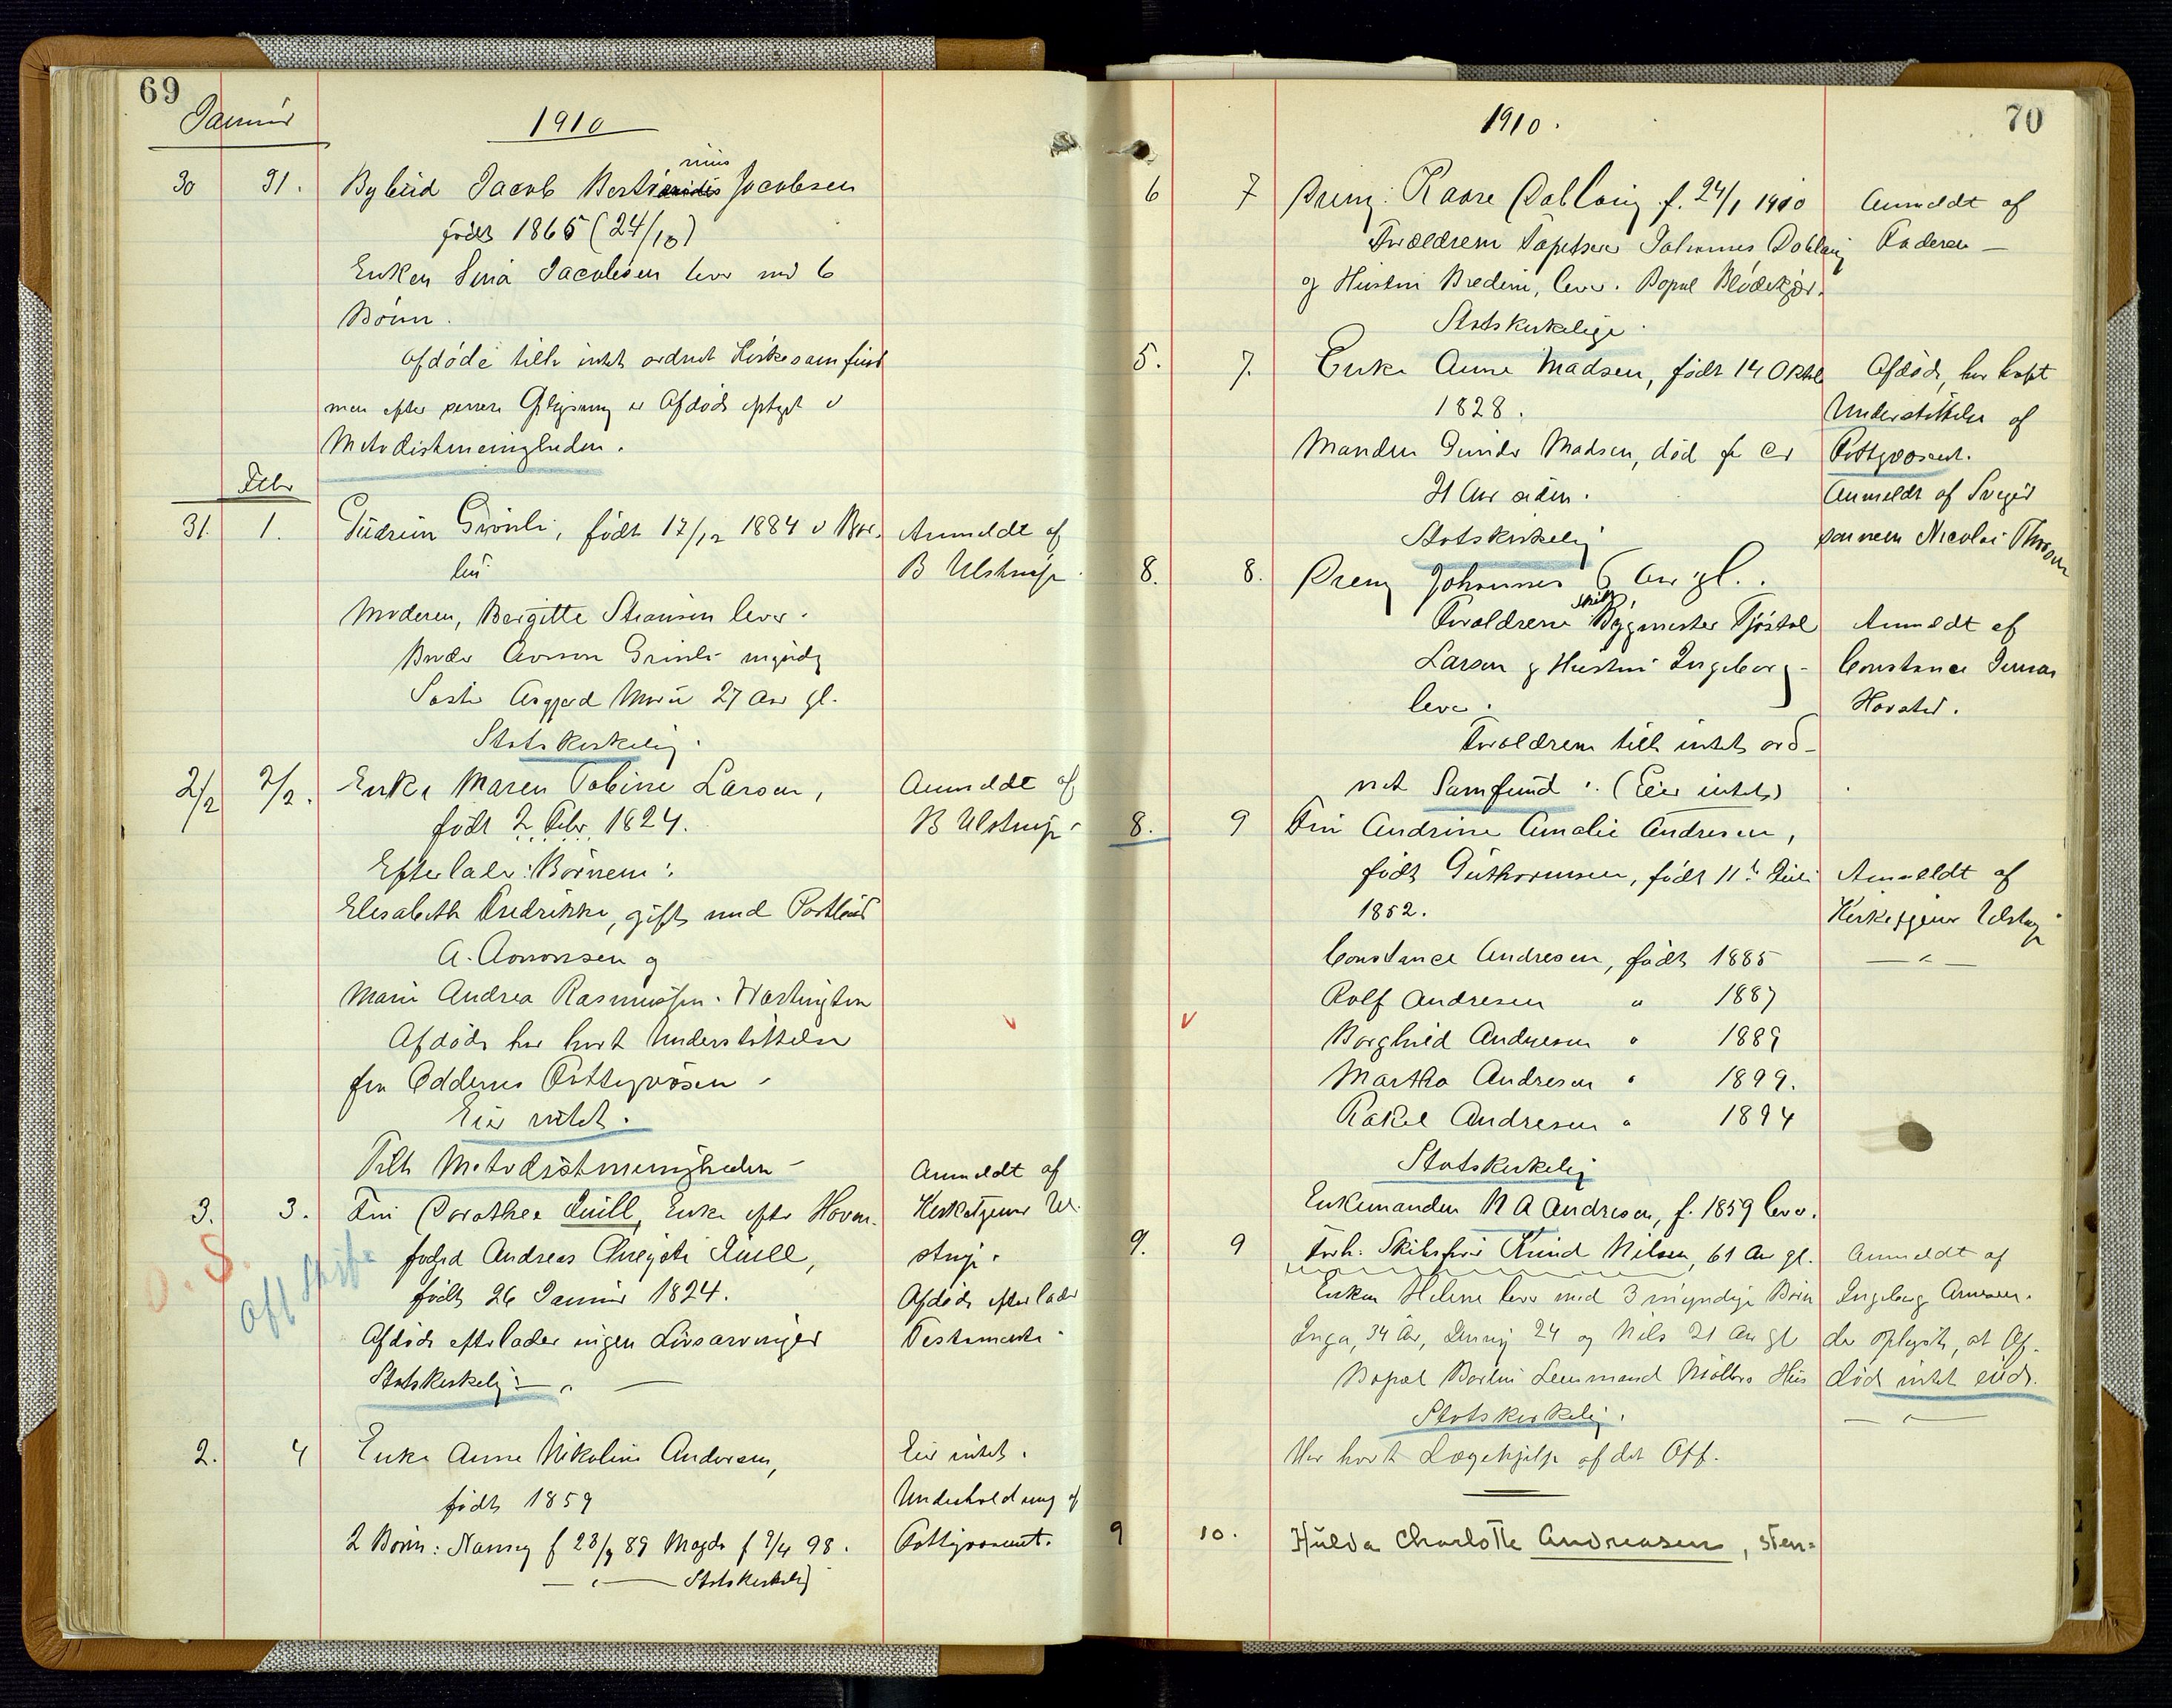 69
Januar
1910
nius
30 31. Bybud Jacob Jacobsen
født 1865 (24/10)
Enken Sina Jacobsen lever med 6
Børn.
Afdøde tilh intet ordnet Kirkesamfund
men efter senere er Afdøde optaget i
Metodistmenigheden.
Febr
31. 1. Gudrun Grønli, født 17/12 1884 i Ber- Anmeldt af
lin B Ulstrup.
Moderen, Bergitte lever.
Broder Grinli myndig
Søster Aagjerd 27 Aar gl.
Statskirkelig.
2/2 2/2. Enke Maren Tobine Larsen, Anmeldt af
født 2 Febr. 1824. B Ulstrup.
Efterlader: Børnene:
Elisabeth Fredrikke, gift med Postbud
A. Aanonsen og
Marie Andrea Rasmussen. Washington
Afdøde har havt Understøttelse
fra Oddernes Fattigvæsen.
Eier intet.
Tilh Metodistmenigheden Anmeldt af
3. 3. Fru Dorothea Quill, Enke efter Havne- Kirketjener Ul-
foged Andreas Quill, strup.
født 26 Januar 1824. Afdøde efterlader
O. S. Off Skifte
Afdøde efterlader ingen Livsarvinger Testamente
Statskirkelig:
2. 4 Enke Anne Nikoline Andersen, Eier intet.
født 1859 Underholdning af
2 Børn: Nanny f 23/9 89 Magda f 7/4 98. Fattigvæsenet.
Statskirkelig
70
1910.
6 7 Dreng: Kaare Dablaug f. 24/1 1910 Anmeldt af
Forældrene Johannes Dablaug Faderen
og Hustru, lever. Bopæl
Statskirkelige.
5. 7. Enke Anne Madsen, født 14 Oktbr Afdøde, har havt
1828. Understøttelse af
Manden Gunder Madsen, død for ca Fattigvæsenet.
21 Aar siden. Anmeldt af Sviger
Statskirkelig sønnen Nicolai
8. 8. Dreng Johannes 6 Aar gl.
Skibs
Forældrene Bygmester Tjøstel Anmeldt af
Larsen og Hustru Ingeborg Constance
lever.
Forældrene tilh intet ord-
net Samfund. (Eier intet)
8. 9 Fru Andrine Amalie Andresen,
født Guthormsen, født 11te Juli Anmeldt af
1852. Kirketjener Ulstrup
Constance Andresen, født 1885
Rolf Andresen " 1887
Borghild Andresen " 1889
Martha Andresen " 1899.
Rakel Andresen " 1894
Statskirkelig
Enkemanden N A Andresen, f. 1859 lever.
9. 9 Forh. Skibsfører Knud Nilsen, 61 Aar gl. Anmeldt af
Enken Helene lever med 3 myndige Børn Ingeborg
Inga, 34 Aar, 24 og Nils 21 Aar gl der oplyste, at Af-
Bopæl Lensmand Møllers Hus død intet eiede.
Statskirkelig.
Har havt Lægehjelp af det Off.
9 10. Hulda Charlotte Andreasen, Sten=